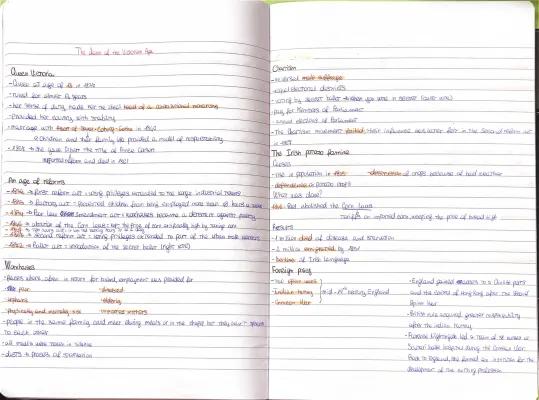 The dawn of the Victorian Age
Queen Victoria
- Queen at age of 18 in 1837
- ruled for almost 64 years
- her sense of duty made her the ideal head of a constitutional monarchy
- Provided her country with stability
- marriage with Prince Albert of Saxe-Coburg-Gotha in 1840
9 children and their family life provided a model of respectability
- 1857 → she gave Albert the title of Prince Consort
An age of reforms
- 1832 → First reform act: voting privileges extended to the large industrial towns
- 1833 → Factory act: prevented children from being employed more than 48 hours a week
- 1834 → Poor law Amendment act: workhouses became a deterrent against poverty
- 1846 → abolition of the Corn Laws: kept the price of corn artificially high by taxing corn
- 1867 → second reform act: voting privileges extended to part of the urban male workers
- 1872 → Ballot act: introduction of the secret ballot
Workhouses
- places where, often in return for board, employment was provided for
- the poor
- disabled
- orphans
- elderly
- physically and mentally sick
- unmarried mothers
- people in the same family could meet during meals or in the chapel but they couldn't speak
to each other
- all meals were taken in silence
Chartism
- universal male suffrage
- equal electoral districts
- voting by secret ballot
- pay for members of Parliament
- annual elections of Parliament
- The Chartism movement failed, their influence was later felt in the second reform act
in 1867
The Irish potato famine
Causes
- rise in population
- destruction of crops because of bad weather
- dependence on potato crops
What was done?
- 1846: Peel abolished the Corn Laws
Tariffs on imported corn, keeping the price of bread high
Results
- 1 million died of disease and starvation
- 2 million emigrated by
- decline of Irish language
Foreign policy
- The opium wars
- Indian mutiny
- Crimean War
mid-19th century England
- England gained access to 5 Chinese ports
and the control of Hong Kong after the
Opium War
- British rule acquired greater responsibility
after the Indian Mutiny
- Florence Nightingale led a team of 38 nurses at
Scutari base hospital during the Crimean War.
Back to England, she formed an institution for the
development of the nursing profession